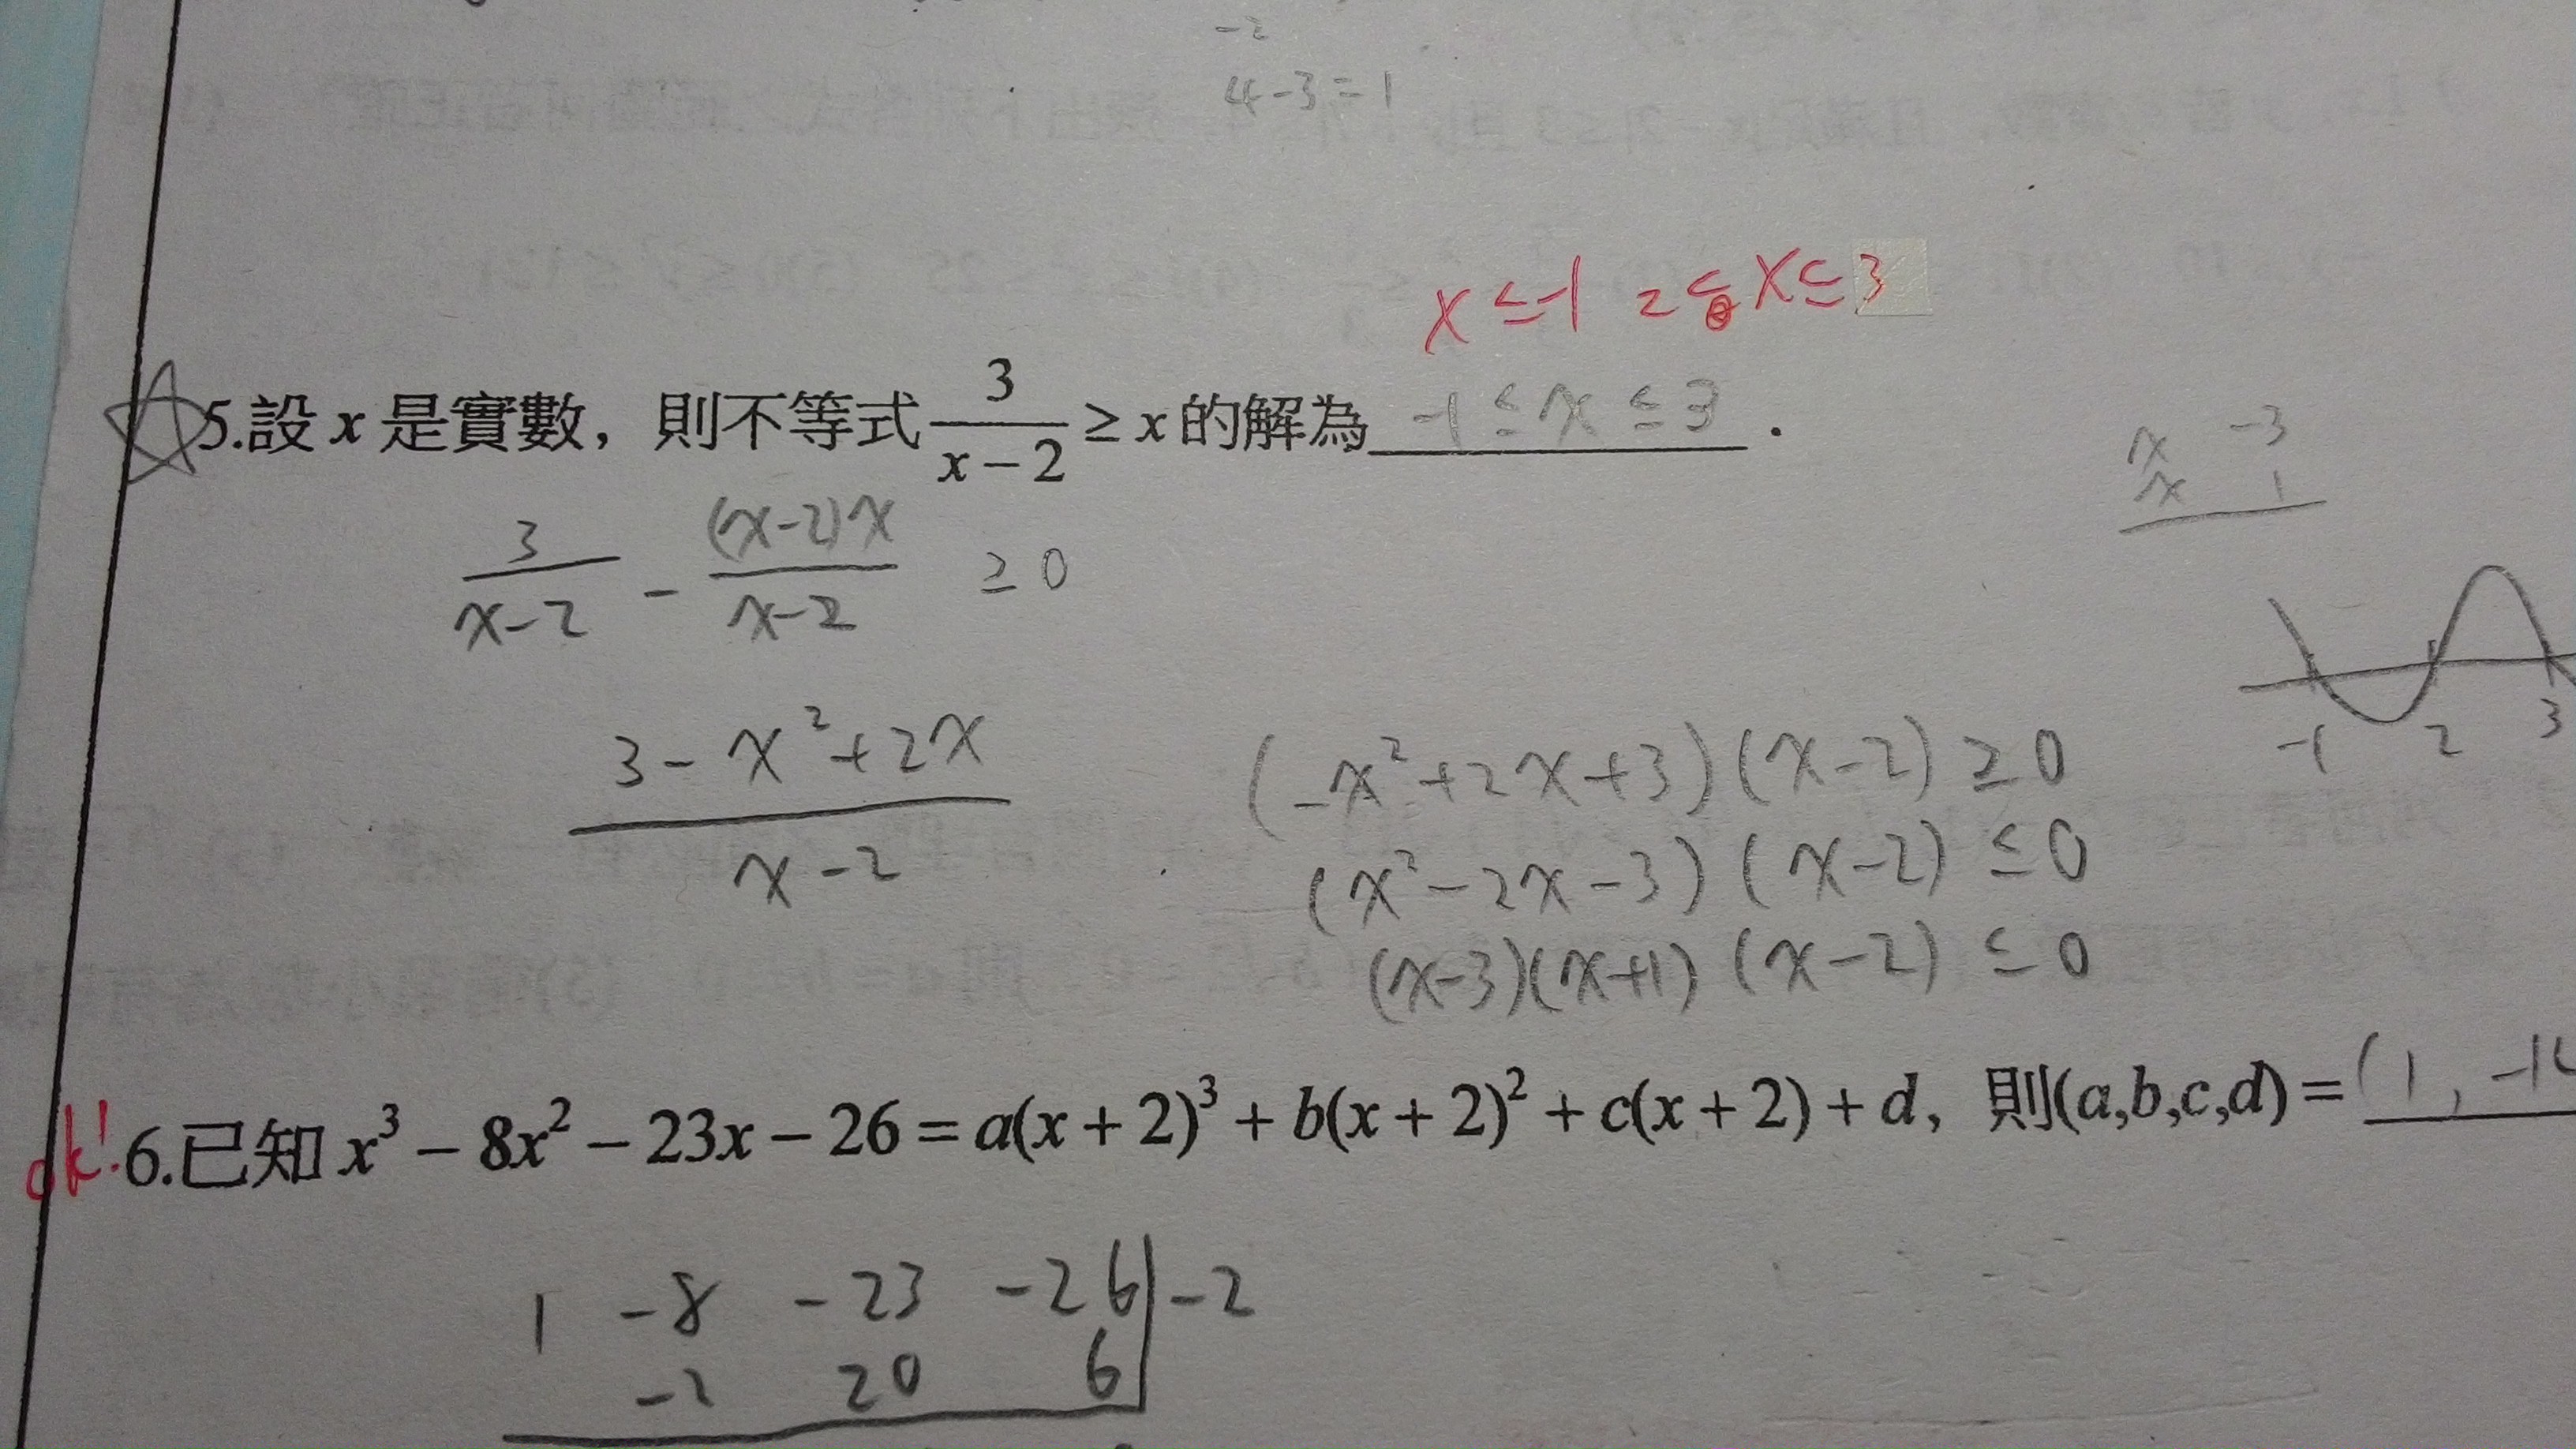 -2
4-3=1
x≤-1 2≤x≤3
5.設 x 是實數，則不等式 3/(x-2) ≥ x 的解為 -1≤x≤3．
x -3
x 1
3/(x-2) - (x-2)x/(x-2) ≥0
-1 2 3
(3-x²+2x)/(x-2)
(-x²+2x+3)(x-2)≥0
(x²-2x-3)(x-2)≤0
(x-3)(x+1)(x-2)≤0
ok! 6.已知 x³-8x²-23x-26=a(x+2)³+b(x+2)²+c(x+2)+d，則(a,b,c,d)=(1, -1
1 -8 -23 -26 -2
-2 20 6